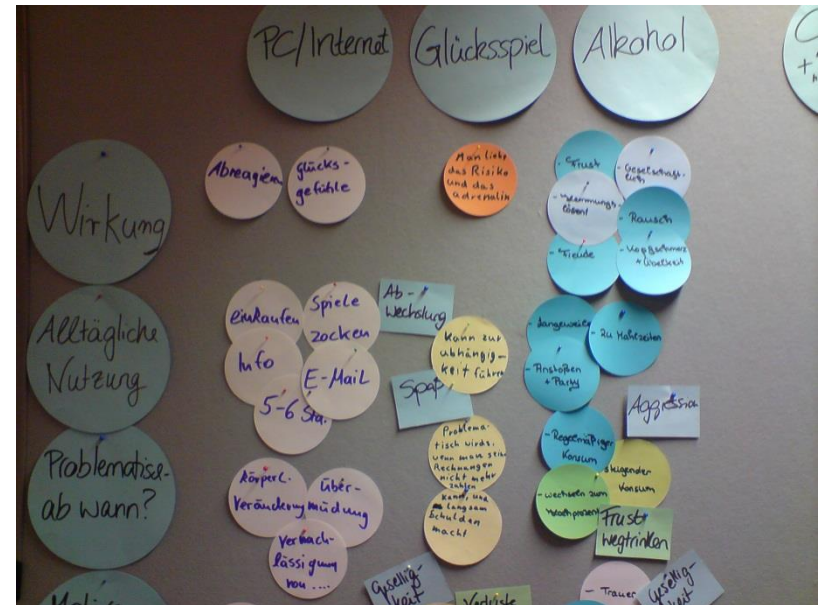 PC/Internet
Glücksspiel
Alkohol
Wirkung
Abreagieren
glücks-
gefühle
Man liebt
das Risiko
und das
adrenalin
- Frust
- Gesellschaft-
lich
- Hemmungs-
lösend
- Rausch
- Freude
- Kopfschmerz
+ Übelkeit
Alltägliche
Nutzung
einkaufen
Spiele
zocken
Info
E-Mail
5-6 Std.
Ab-
wechslung
Spaß
Kann zur
abhängig-
keit führen
- Langeweile
- Zu Mahlzeiten
- Anstoßen
+ Party
Aggression
Problematisch-
ab wann?
Körperl.
Veränderung
Über-
müdung
Vernach-
lässigung
von ....
Problema-
tisch wirds,
wenn man sein
Rechnungen
nicht mehr
zahlen
kann, und
langsam
Schulden
macht
- Regelmäßiger
Konsum
steigender
Konsum
- wechseln zum
Hochprozent
Frust
wegtrinken
Gesellig-
keit
Verluste
- Trauer
Gesellig-
keit